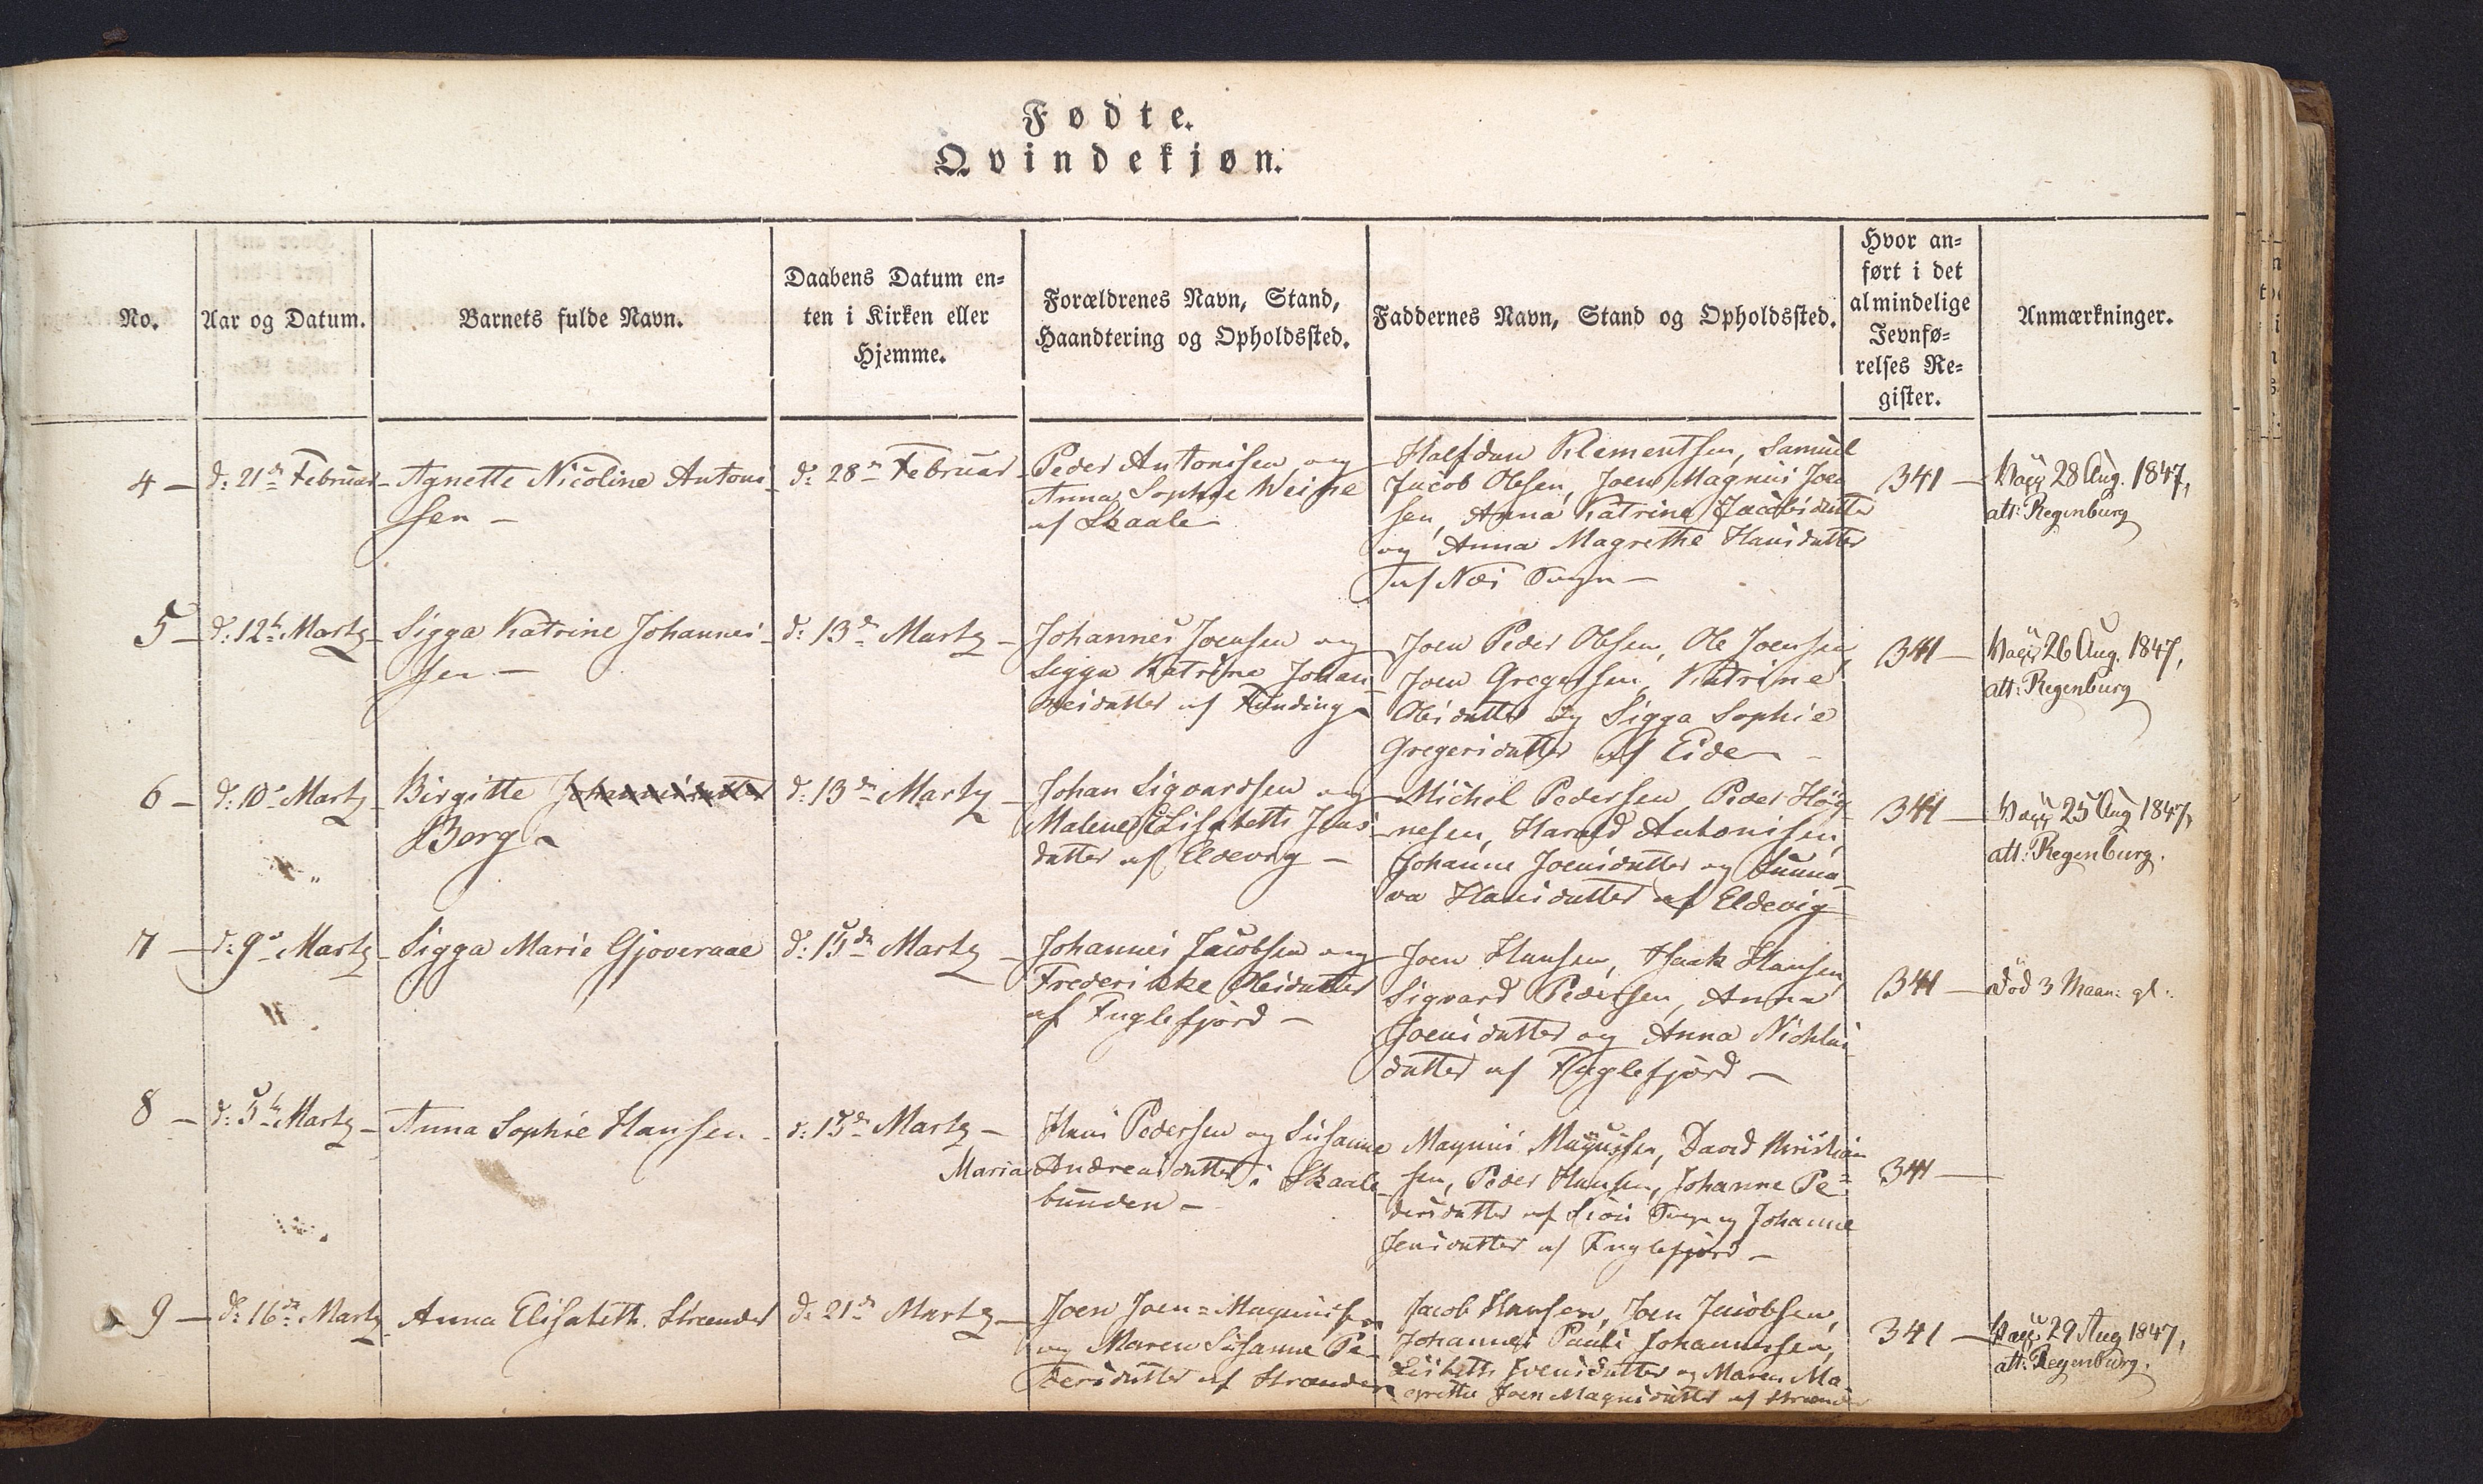 Fødte.
Qvindekjøn.
No.
Aar og Datum.
Barnets fulde Navn.
Daabens Datum en=
ten i Kirken eller
Hjemme.
Forældrenes Navn, Stand,
Haandtering og Opholdssted.
Faddernes Navn, Stand og Opholdssted.
Hvor an=
ført i det
almindelige
Jevnfø=
relses Re=
gister.
Anmærkninger.
4 –
d: 21de Februar
Agnette Nicoline Antoni
sen –
d: 28de Februar
Peder Antonisen og
Anna Sophie Weihe
af Skaale
Halfdan Klementsen, Samuel
Jacob Olsen, Joen Magnus Joen
sen, Anna Katrine Jacobsdatter
og Anna Magrethe Hansdatter
af Næs Sogn –
341 –
Vacc 28 Aug. 1847,
att: Regenburg
5 –
d: 12te Marty
Sigga Katrine Johannes
sen –
d: 13de Marty –
Johannes Joensen og
Sigga Katrine Johan
nesdatter af Funding
Joen Peder Olsen, Ole Joensen,
Joen Gregersen, Katrine
Olesdatter og Sigga Sophie
Gregersdatter af Eide
341 –
Vacc 26 Aug. 1847,
att: Regenburg
6 –
d: 10de Marty
Birgitte Johannesdatter
Berg
d: 13de Marty –
Johan Sigvardsen og
Malene Elisabeth Jens
datter af Eldevig –
Michel Pedersen, Peder Høg
nesen, Harald Antonisen,
Johanne Joensdatter og Sunne
va Hansdatter af Eldevig
341 –
Vacc 25 Aug 1847,
att: Regenburg.
7 –
d: 9de Marty
Sigga Marie Gjoveraae
d: 15de Marty –
Johannes Jacobsen og
Frederikke Olesdatter
af Fuglefjord –
Joen Hansen, Isaak Hansen,
Sigvard Pedersen, Anna
Joensdatter og Anna Nicklas
datter af Fuglefjord –
341 –
Död 3 Maan: gl.
8 –
d: 5te Marty –
Anna Sophie Hansen
d: 15de Marty –
Hans Pedersen og Susanne
Maria Andreasdatter i Skaale
bunden –
Magnus Magnussen, David Kristian
sen, Peder Hansen, Johanne Pe=
dersdatter af Sogn og Johanne
Jensdatter af Fuglefjord –
341 –
9 –
d: 16de Marty
Anna Elisabeth Strænder
d: 21de Marty –
Joen Joen=Magnussen
og Maren Susanne Pe
dersdatter af Strænder
Jacob Hansen, Joen Jacobsen,
Johannes Pauli Johannessen,
Lisbeth Joensdatter og Maren Ma
grethe Joen Magnusdatter af Strænder
341 –
Vacc 29 Aug 1847,
att: Regenburg.